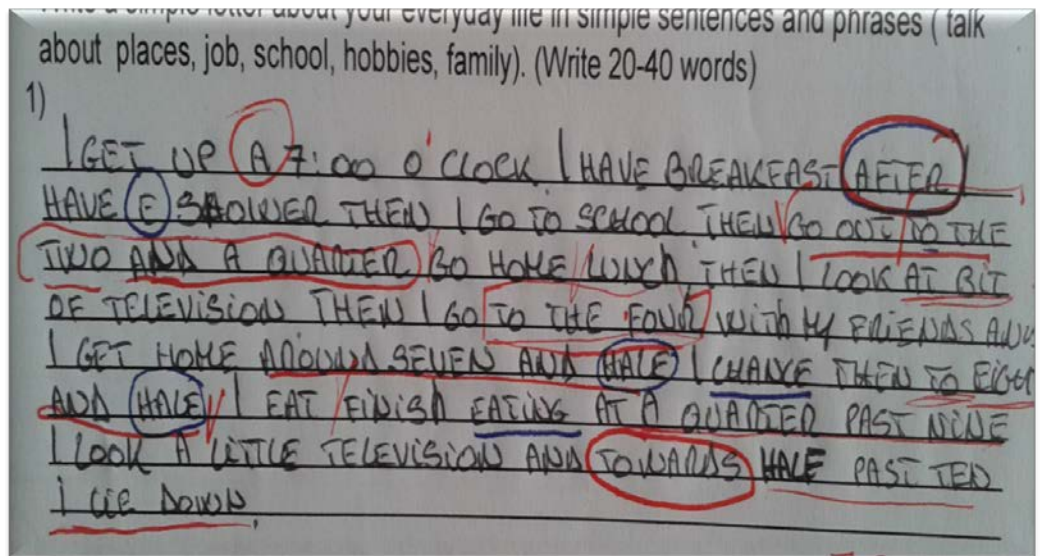 Write a simple letter about your everyday life in simple sentences and phrases ( talk
about places, job, school, hobbies, family). (Write 20-40 words)
1)
I GET UP A 7:00 O'CLOCK I HAVE BREAKFAST AFTER I
HAVE E SHOWER THEN I GO TO SCHOOL THEN GO OUT TO THE
TWO AND A QUARTER GO HOME LUNCH THEN I LOOK AT BIT
OF TELEVISION THEN I GO TO THE FOUR WITH MY FRIENDS AND
I GET HOME AROUND SEVEN AND HALE I CHANGE THEN TO EIGHT
AND HALE I EAT FINISH EATING AT A QUARTER PAST NINE
I LOOK A LITTLE TELEVISION AND TOWARDS HALF PAST TEN
I LIE DOWN.